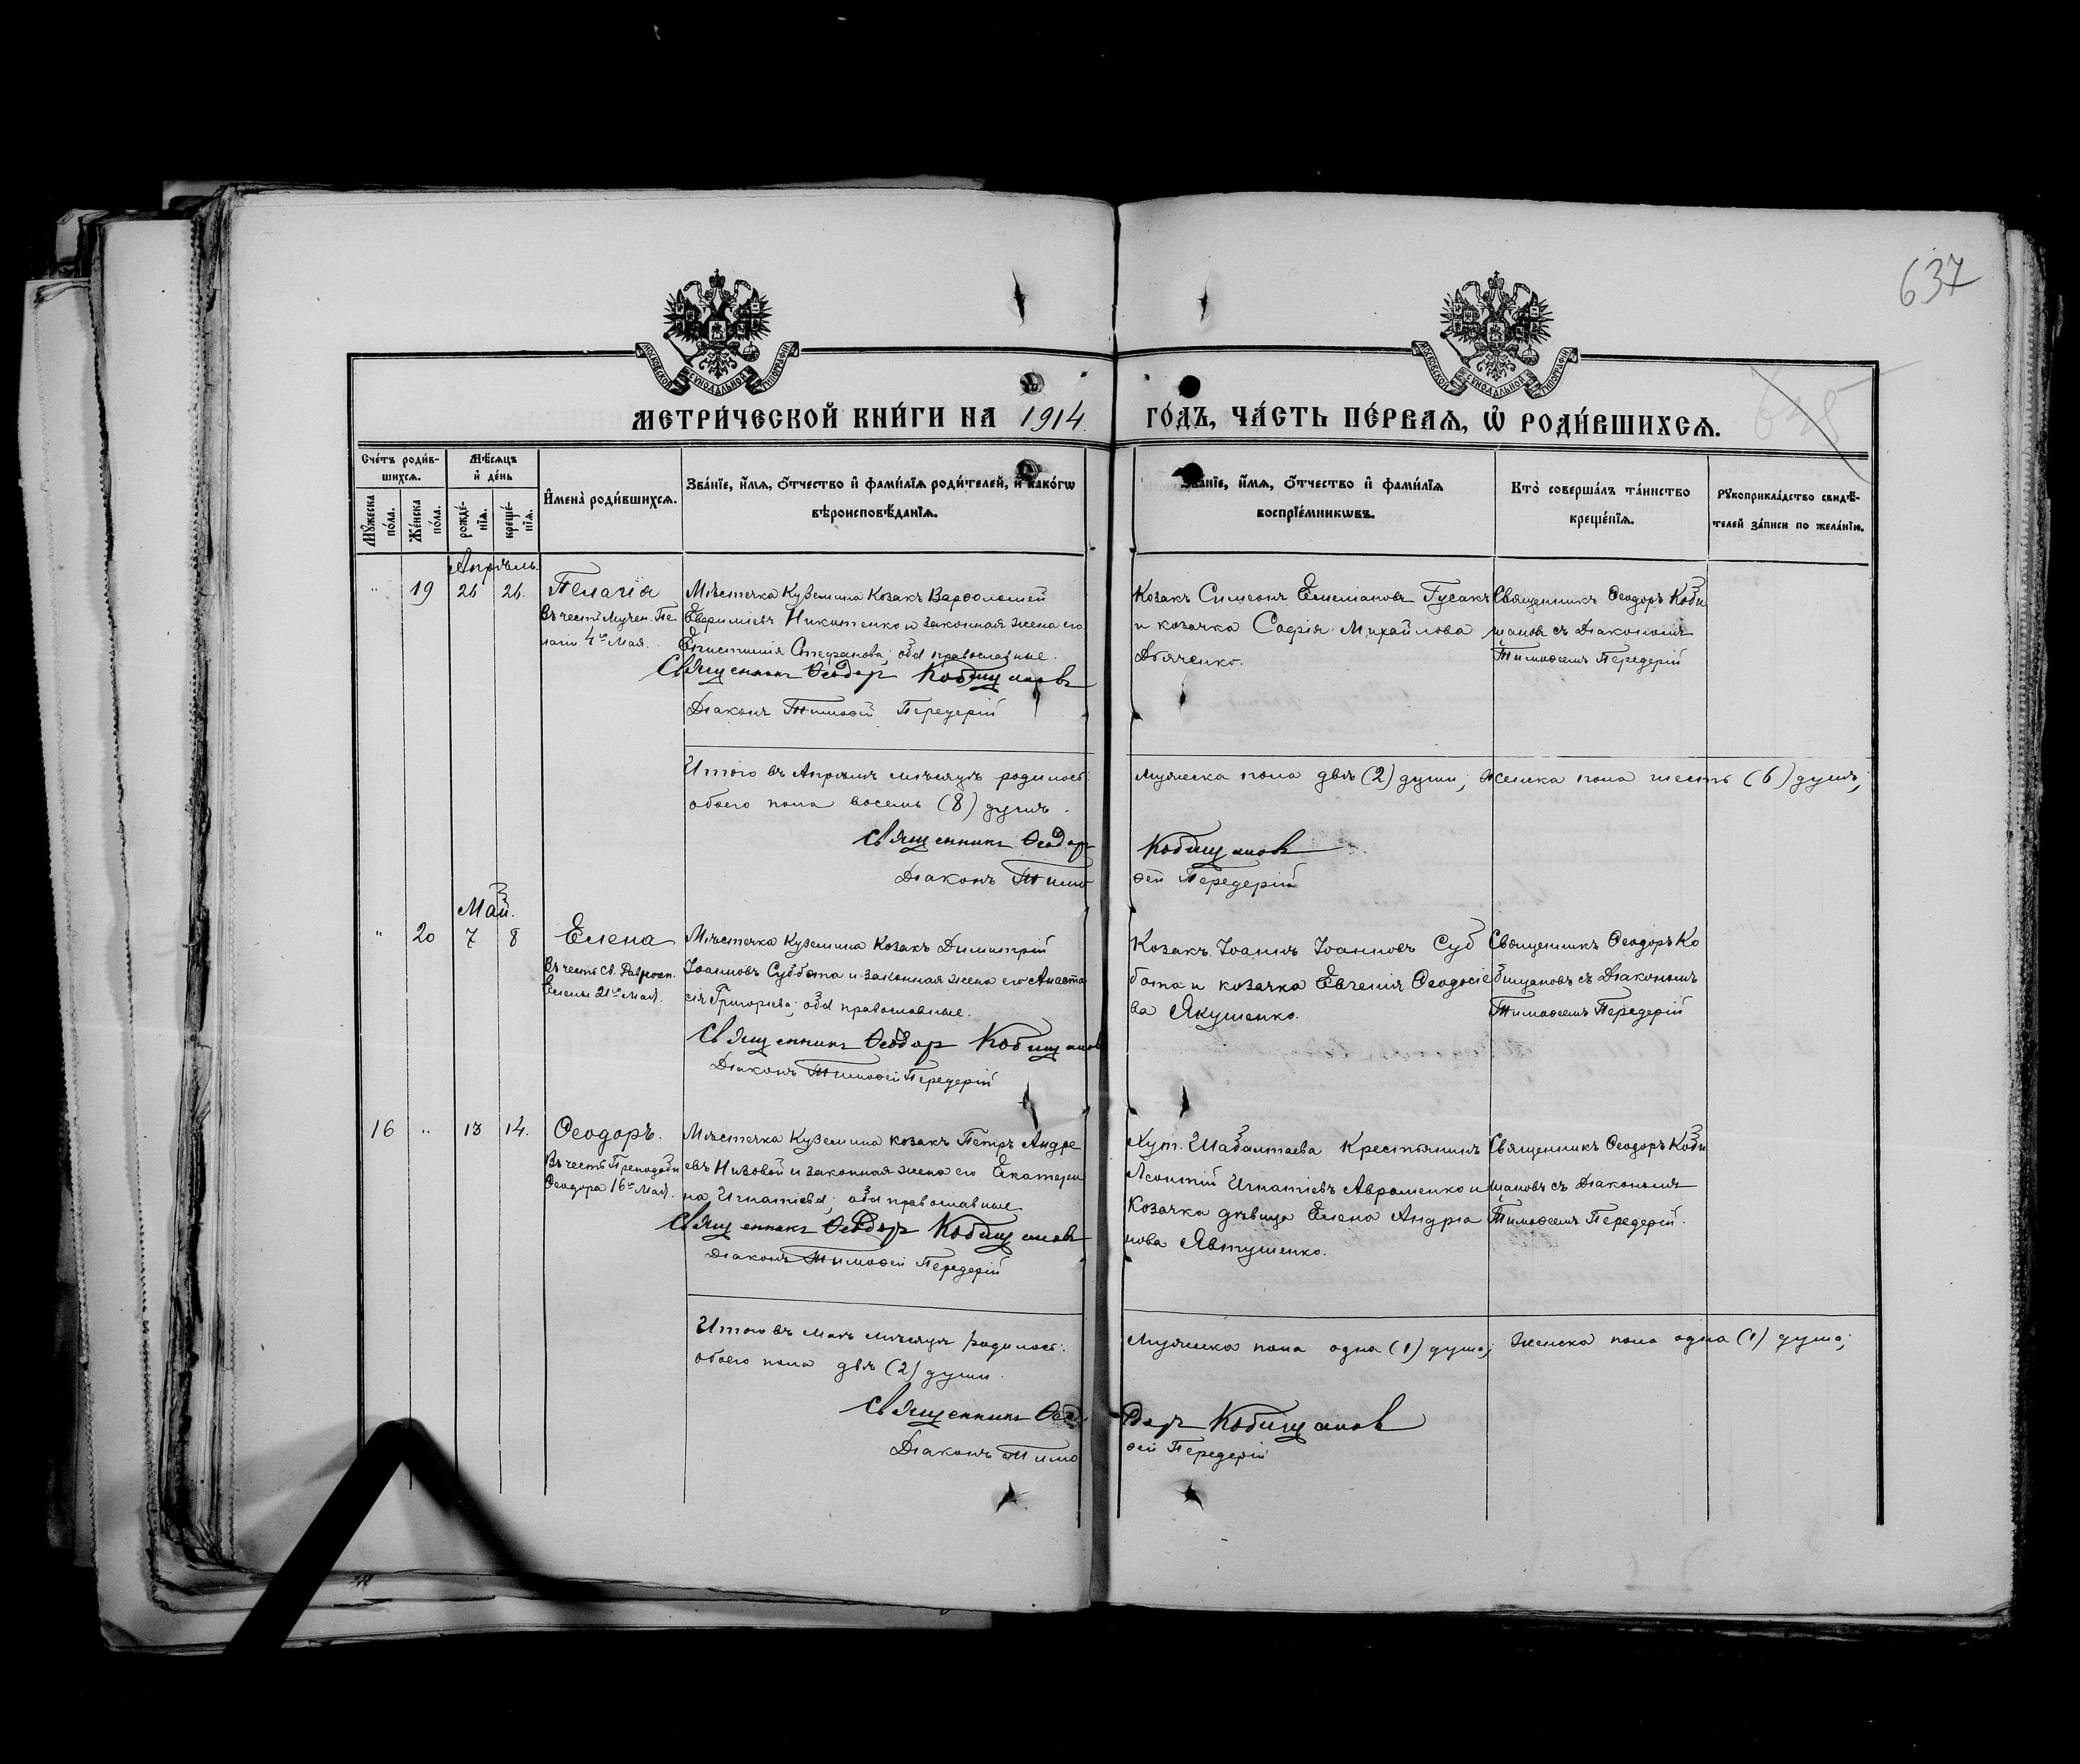 637
МОСКОВСКОЙ СѴНОДАЛЬНОЙ ТИПОГРАФІИ
МОСКОВСКОЙ СѴНОДАЛЬНОЙ ТИПОГРАФІИ
МЕТРИ́ЧЕСКОЙ КНИ́ГИ НА 1914 ГО́ДЪ, ЧА́СТЬ ПЕ́РВАѦ, Ѽ РОДИ́ВШИХСѦ.
Сче́тъ роди́в-
шихсѧ.
Мѣ́сѧцъ
и҆ де́нь
Мꙋ́жеска
по́ла.
Же́нска
по́ла.
рожде́-
нїѧ.
креще́-
нїѧ.
И҆мена̀ роди́вшихсѧ.
Зва́нїе, и҆́мѧ, ѻ҆́тчество и҆ фами́лїѧ роди́телей, и҆ како́гѡ
вѣроисповѣ́данїѧ.
Зва́нїе, и҆́мѧ, ѻ҆́тчество и҆ фами́лїѧ
воспрїе́мникѡвъ.
Кто̀ соверша́лъ та́инство
креще́нїѧ.
Рꙋкоприкла́дство свидѣ́-
телей за́писи по жела́нїю.
Апрѣль.
" 19 26 26.
Пелагія
Въ честь Мучен. Пе
лагіи 4го Мая.
Мѣстечка Куземина Козакъ Варѳоломей
Евѳиміевъ Никитенко и законная жена его
Епистимія Стефанова; оба православные.
Священникъ Ѳеодоръ Кобищановъ
Діаконъ Тимоѳей Передерій
Козакъ Симеонъ Емеліановъ Гусакъ
и козачка Софія Михайлова
Дяченко.
Священникъ Ѳеодоръ Коби
щановъ съ Діакономъ
Тимоѳеемъ Передерій
Итого въ Апрѣлѣ мѣсяцѣ родилось:
обоего пола восемь (8) душъ.
Мужеска пола двѣ (2) души; женска пола шесть (6) душъ;
Священникъ Ѳеодоръ Кобищановъ
Діаконъ Тимоѳей Передерій
Май.
" 20 7 8
Елена
Въ честь Св. Равноап.
Елены 21го Мая.
Мѣстечка Куземина Козакъ Димитрій
Іоанновъ Суббота и законная жена его Анаста
сія Григоріева; оба православные.
Священникъ Ѳеодоръ Кобищановъ
Діаконъ Тимоѳей Передерій
Козакъ Іоаннъ Іоанновъ Суб
бота и козачка Евгенія Ѳеодосіе
ва Якушенко.
Священникъ Ѳеодоръ Ко
бищановъ съ Діакономъ
Тимоѳеемъ Передерій
16 " 13 14.
Ѳеодоръ.
Въ честь Преподобн
Ѳеодора 16го Мая.
Мѣстечка Куземина козакъ Петръ Андре
евъ Низовой и законная жена его Екатери
на Игнатіева; оба православные
Священникъ Ѳеодоръ Кобищановъ
Діаконъ Тимоѳей Передерій
Хут. Шабалтаева Крестьянинъ
Леонтій Игнатіевъ Авраменко и
Козачка дѣвица Елена Андріа
нова Явтушенко.
Священникъ Ѳеодоръ Коби
щановъ съ Діакономъ
Тимоѳеемъ Передерій.
Итого въ маѣ мѣсяцѣ родилось:
обоего пола двѣ (2) души.
Мужеска пола одна (1) душа; Женска пола одна (1) душа;
Священникъ Ѳеодоръ Кобищановъ
Діаконъ Тимоѳей Передерій